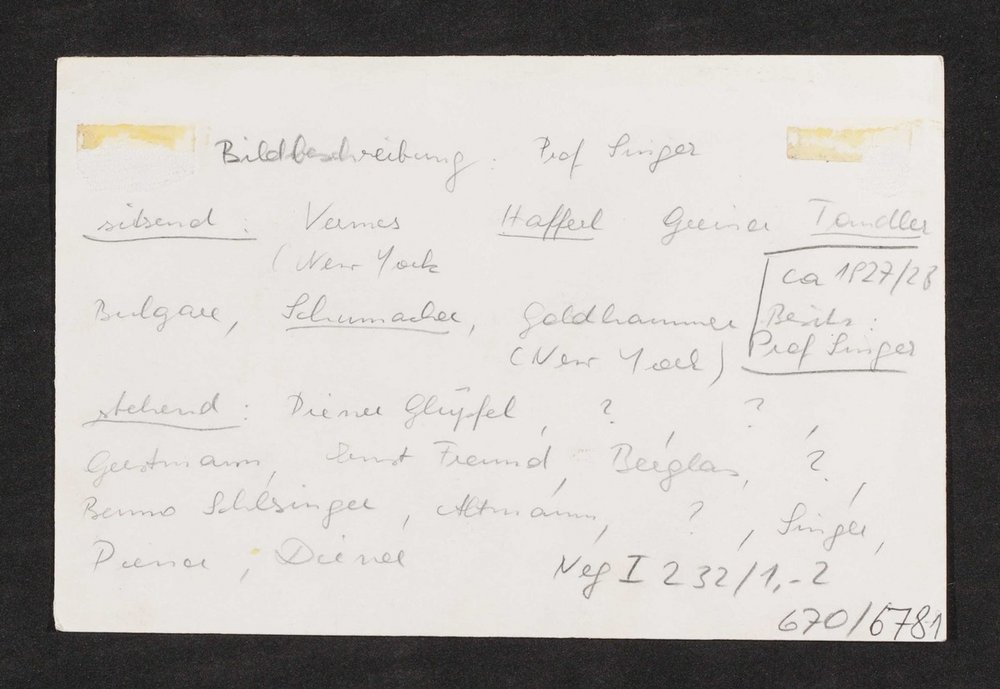 Bildbeschreibung. Prof Singer
sitzend: Vermes Hafferl Greiner Tandler
(New York
ca 1927/28
Bulgare, Schumacher, Goldhammer
Besitz:
(New York)
Prof Singer
stehend: Diener Glüpfel, ?, ?,
Gerstmann, Ernst Freund, Berglas, ?,
Benno Schlesinger, Altmann, ?, Singer,
Diener, Diener
Neg I 232/1,-2
670/6781